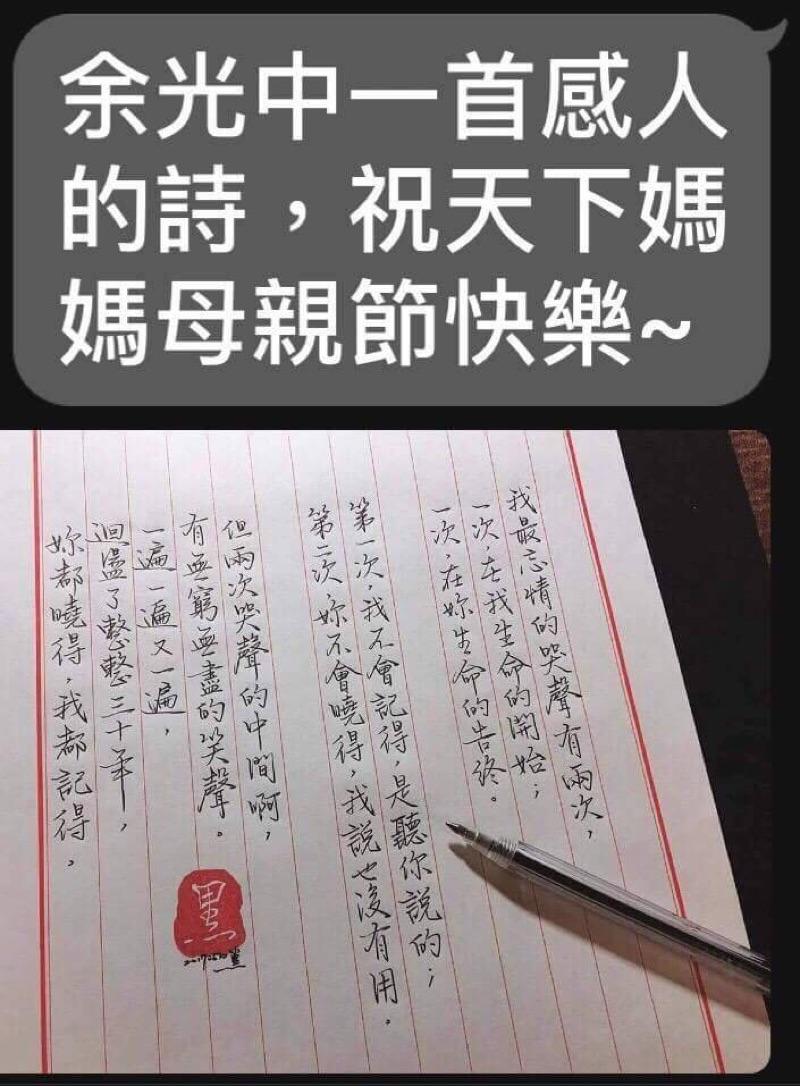 余光中一首感人
的詩，祝天下媽
媽母親節快樂~
我最忘情的哭聲有兩次，
一次，在我生命的開始；
一次，在妳生命的告終。
第一次，我不會記得，是聽你說的；
第二次，妳不會曉得，我說也沒有用。
但兩次哭聲的中間啊，
有無窮無盡的笑聲。
一遍一遍又一遍，
迴盪了整整三十年，
妳都曉得，我都記得。
黑